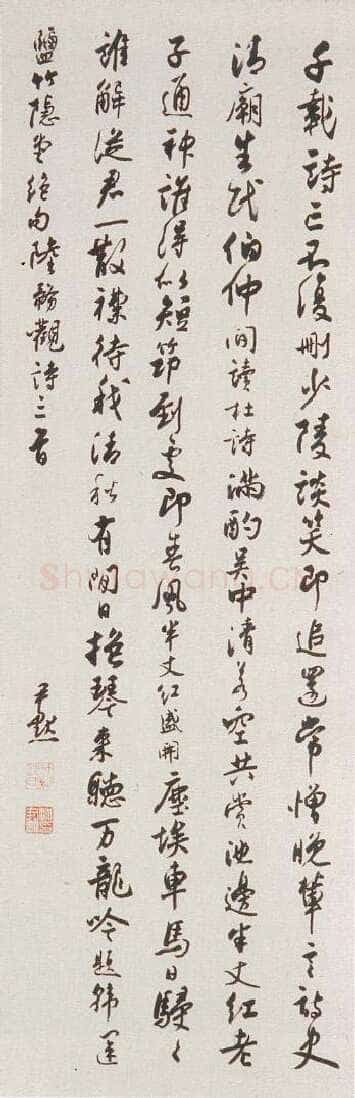 千載詩亡不復刪少陵談笑即追還常憎晚輩言詩史
清廟生民伯仲間讀杜詩滿酌吳中清若空共賞池邊半丈紅老
子通神誰得似短筇到處即春風半丈紅盛開塵埃車馬日駸〻
誰解從君一散襟待我清秋有閒日抱琴來聽万龍吟題韓運
鹽竹隱堂絕句陸務觀詩三首
尹默